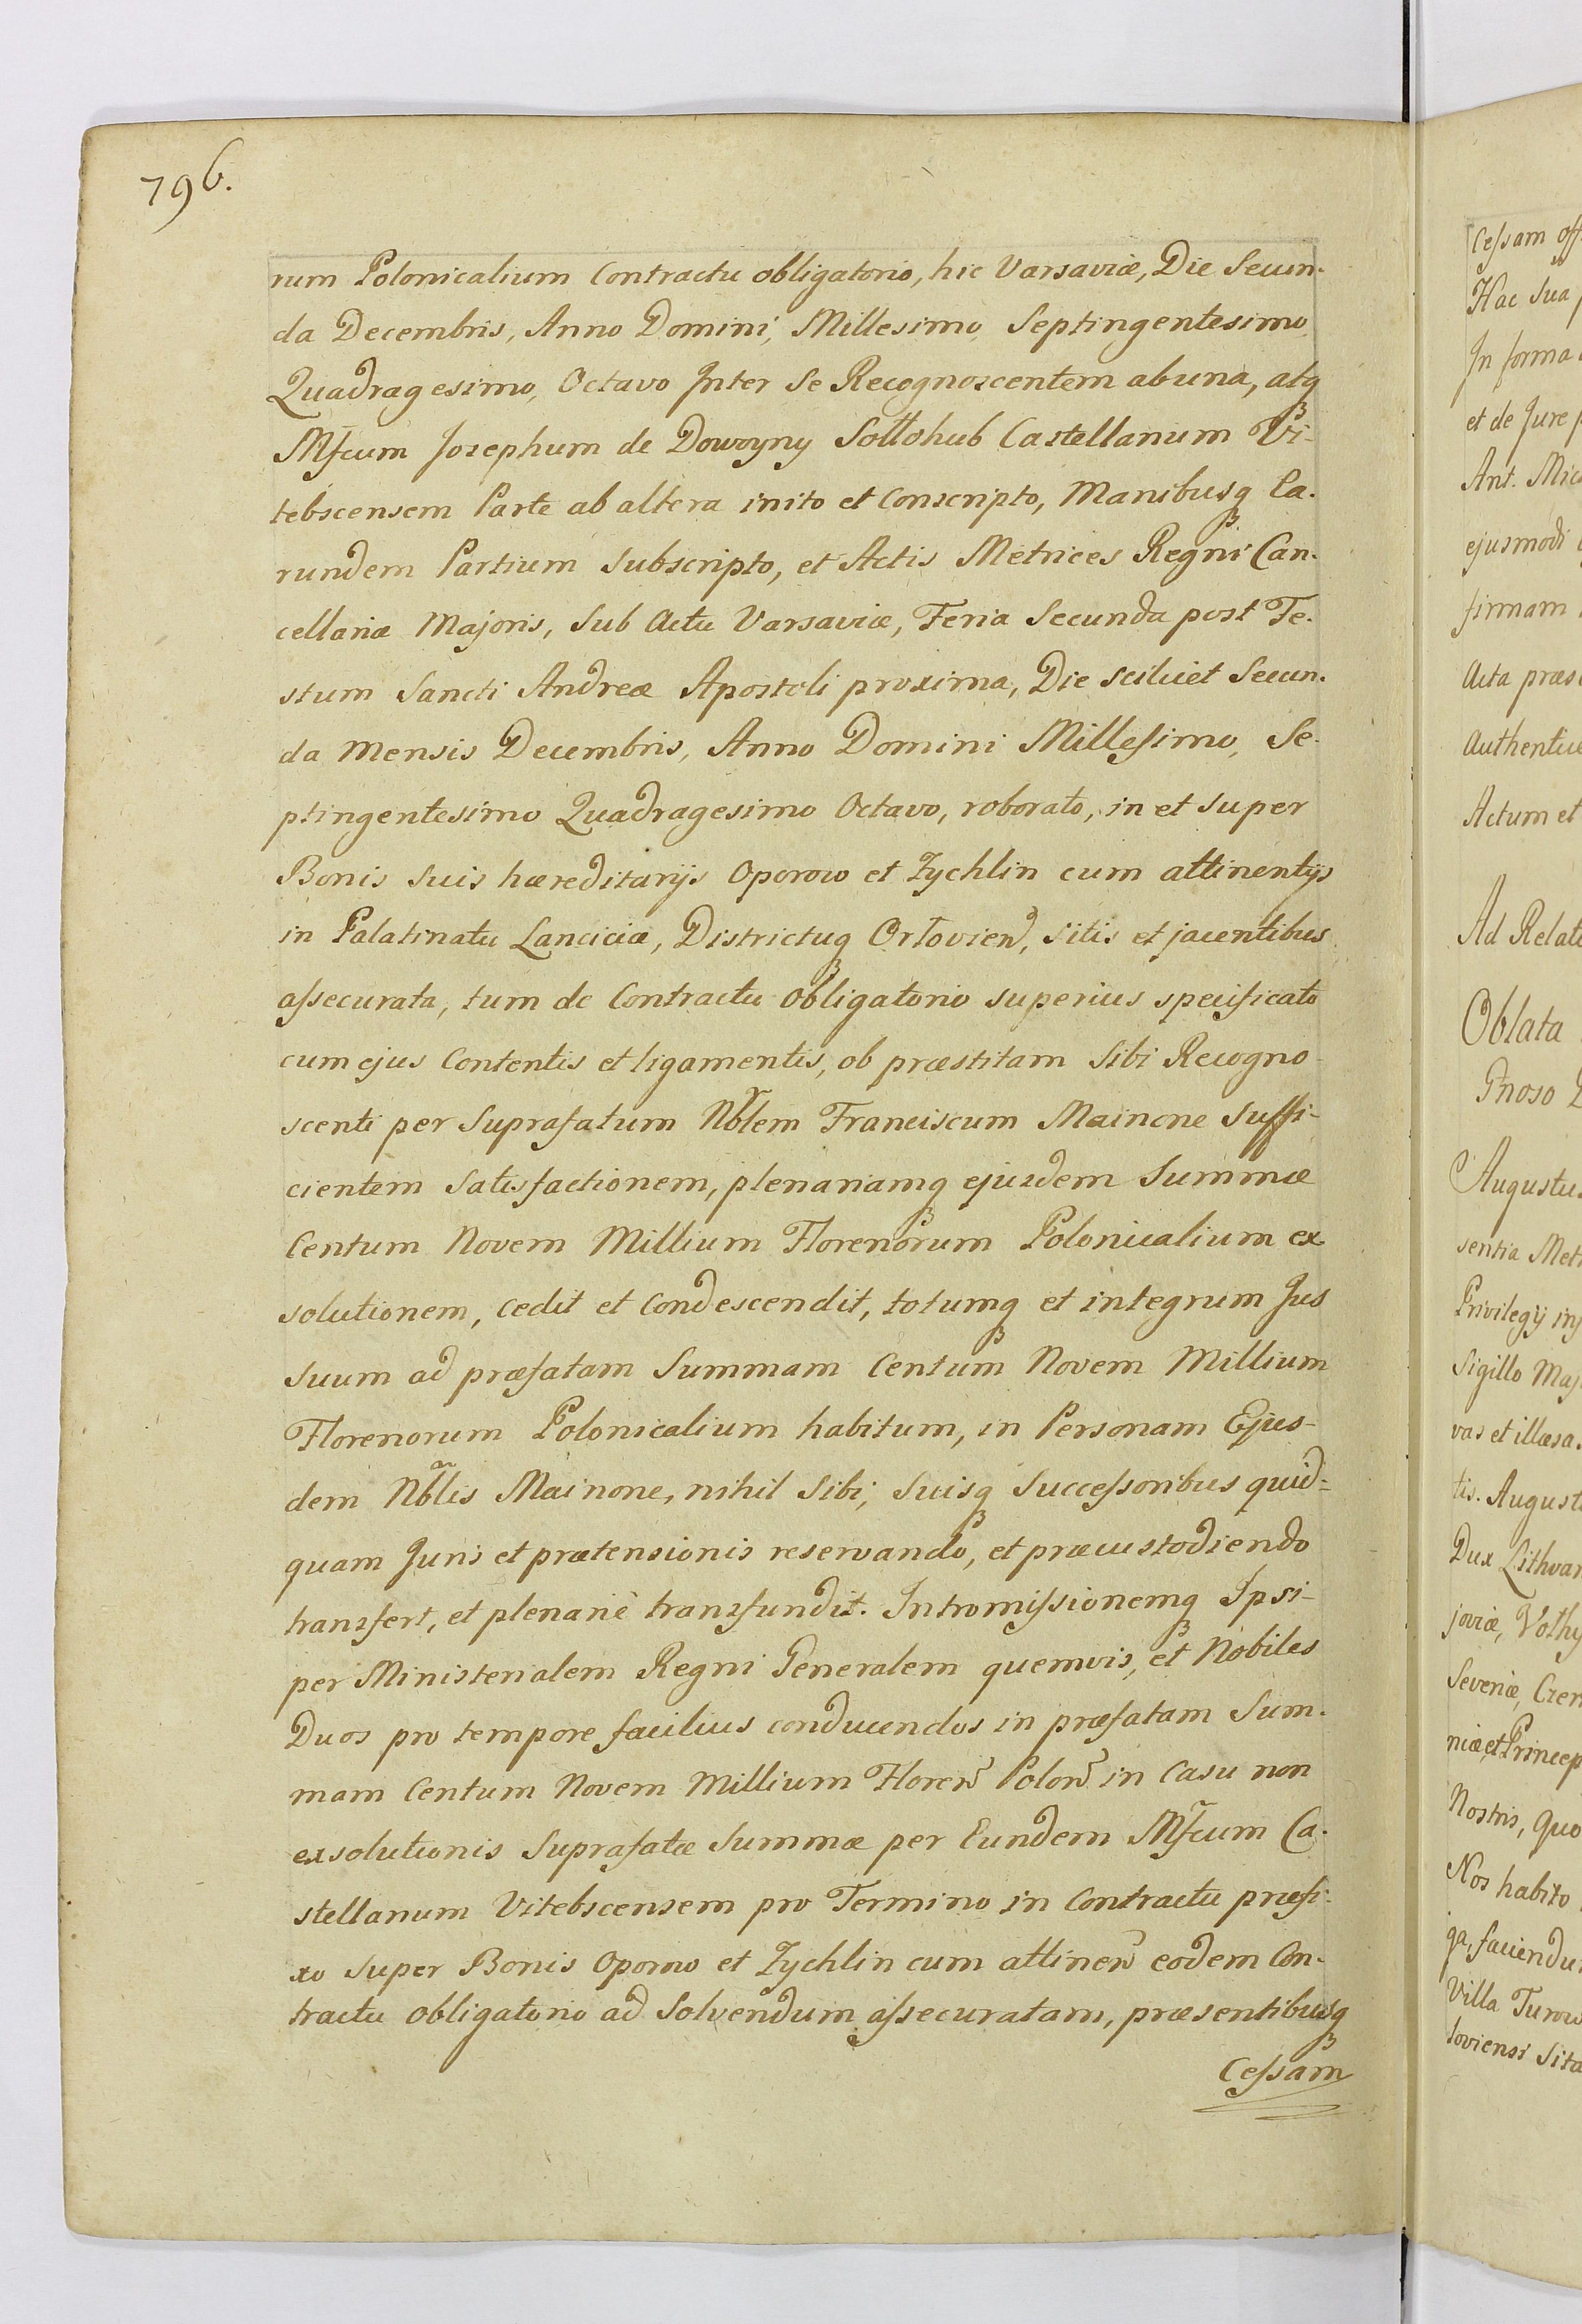 796.
rum Polonicalium Contractu obligatorio, hic Varsaviæ, Die Secun-
da Decembris, Anno Domini, Millesimo, Septingentesimo
Quadragesimo, Octavo Inter Se Recognoscentem ab una, atqꝫ
Mfcum Josephum de Dowoyny Sołłohub Castellanum Vi-
tebscensem Parte ab altera inito et Conscripto, Manibusqꝫ Ea-
rundem Partium Subscripto, et Actis Metrices Regni Can-
cellariæ Majoris, Sub Actu Varsaviæ, Feria Secunda post Fe-
stum Sancti Andreæ Apostoli proxima, Die scilicet Secun-
da Mensis Decembris, Anno Domini Milleſimo, Se-
ptingentesimo Quadragesimo Octavo, roborato, in et super
Bonis Suis hæreditarijs Oporow et Zychlin cum attinentijs
in Palatinatu Lanciciæ, Districtuqꝫ Orłovien̄, Sitis et jacentibus
aſsecurata, tum de Contractu Obligatorio superius specificato
cum ejus Contentis et ligamentis, ob præstitam Sibi Recogno-
scenti per Suprafatum Nb̃lem Franciscum Mainone Suffi-
cientem Satisfactionem, plenariamqꝫ ejusdem Summæ
Centum Novem Millium Florenorum Polonicalium ex
solutionem, cedit et Condescendit, totumqꝫ et integrum Jus
Suum ad præfatam Summam Centum Novem Millium
Florenorum Polonicalium habitum, in Personam Ejus-
dem Nb̃lis Mainone, nihil Sibi, Suisqꝫ Succeſsoribus quid-
quam Juris et prætensionis reservando, et præcustodiendo
transfert, et plenariè transfundit. Intromiſsionemqꝫ Ipsi-
per Ministerialem Regni Generalem quemvis, et Nobiles
Duos pro tempore facilius conducendos in præfatam Sum-
mam Centum Novem Millium Floren̄ Polon̄ in Casu non
exsolutionis Suprafatæ Summæ per Eundem Mf̃cum Ca-
stellanum Vitebscensem pro Termino in Contractu præfi-
xo super Bonis Oporow et Zychlin cum attinen̄ eodem Con-
tractu Obligatorio ad Solvendum aſsecuratam, præsentibusqꝫ
Ceſsam
Ceſsam off
Hac Sua
In forma
et de Jure
Ant. Mic
ejusmodi
firmam
Acta præs
Authentic
Actum et
Ad Relati
Oblata
Gnoso
Augustus
sentia Met
Privilegij in
Sigillo Maj
vas et illæsa
tis. August
Dux Lithvan
joviæ, Volhy
Severiæ, Czer
niæ, et Princep
Nostris, Quo
Nos habito
ga, faciendu
Villa Turow
loviensi Sita